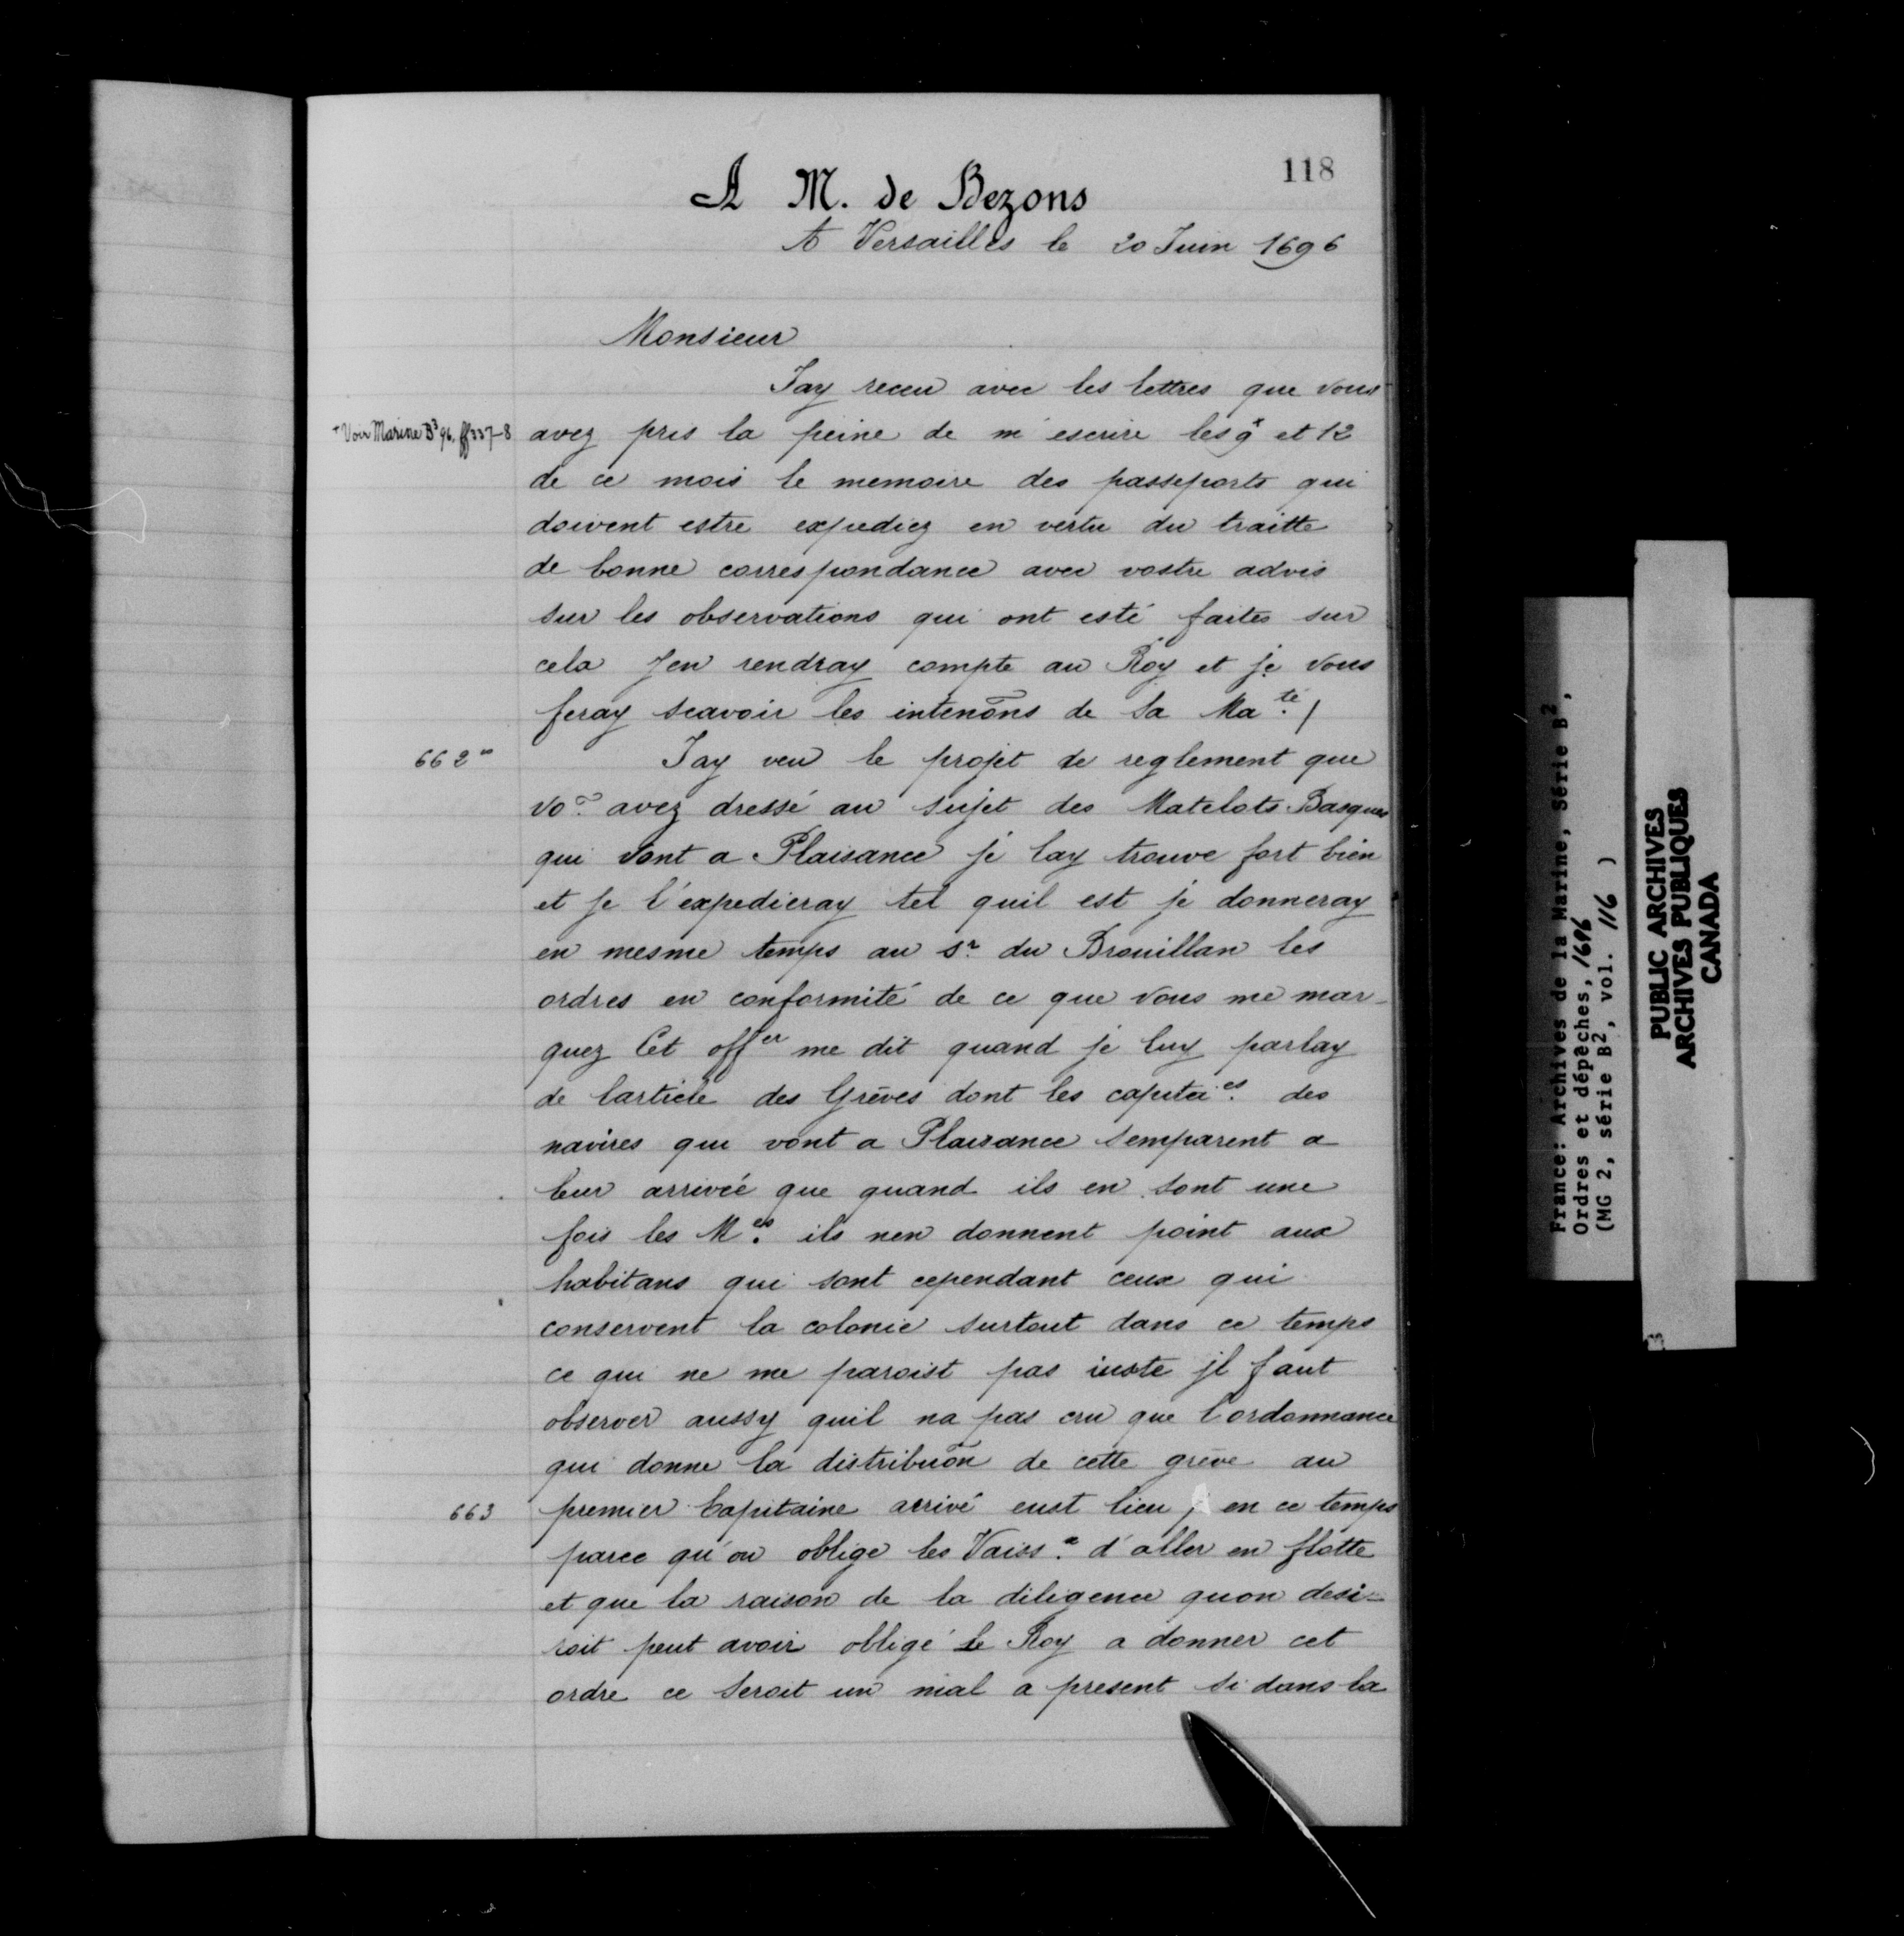 118
A M. de Bezons
A Versailles le 20 Juin 1696
Monsieur
Jay receu avec les lettres que vous
+ Voir Marine B³ 96, ff 337-8
avez pris la peine de m'escrire les 9+ et 12
de ce mois le memoire des passeports qui
doivent estre expediez en vertu du traitte
de bonne correspondance avec vostre advis
sur les observations qui ont esté faites sur
cela Jen rendray compte au Roy et je vous
feray scavoir les intenõns de Sa Ma.té /
662
Jay veu le projet de reglement que
vo~ avez dressé au sujet des Matelots Basques
qui vont a Plaisance je lay trouve fort bien
et je l'expedieray tel quil est je donneray
en mesme temps au Sr. du Brouillan les
ordres en conformité de ce que vous me mar-
quez Cet offer me dit quand je luy parlay
de larticle des Grèves dont les capitai.es des
navires qui vont a Plaisance semparent a
leur arrivée que quand ils en sont une
fois les M.es ils nen donnent point aux
habitans qui sont cependant ceux qui
conservent la colonie surtout dans ce temps
ce qui ne me paroist pas iuste jl faut
observer aussy quil na pas cru que l'ordonnance
qui donne la distribuõn de cette grève au
663
premier Capitaine arrivé eust lieu en ce temps
parce qu'on oblige les Vaiss.x d'aller en flotte
et que la raison de la diligence quon desi-
roit peut avoir obligé le Roy a donner cet
ordre ce seroit un mal a present si dans la
France: Archives de la Marine, Série B²,
Ordres et dépêches, 1696
(MG 2, série B², vol. 116 )
PUBLIC ARCHIVES
ARCHIVES PUBLIQUES
CANADA